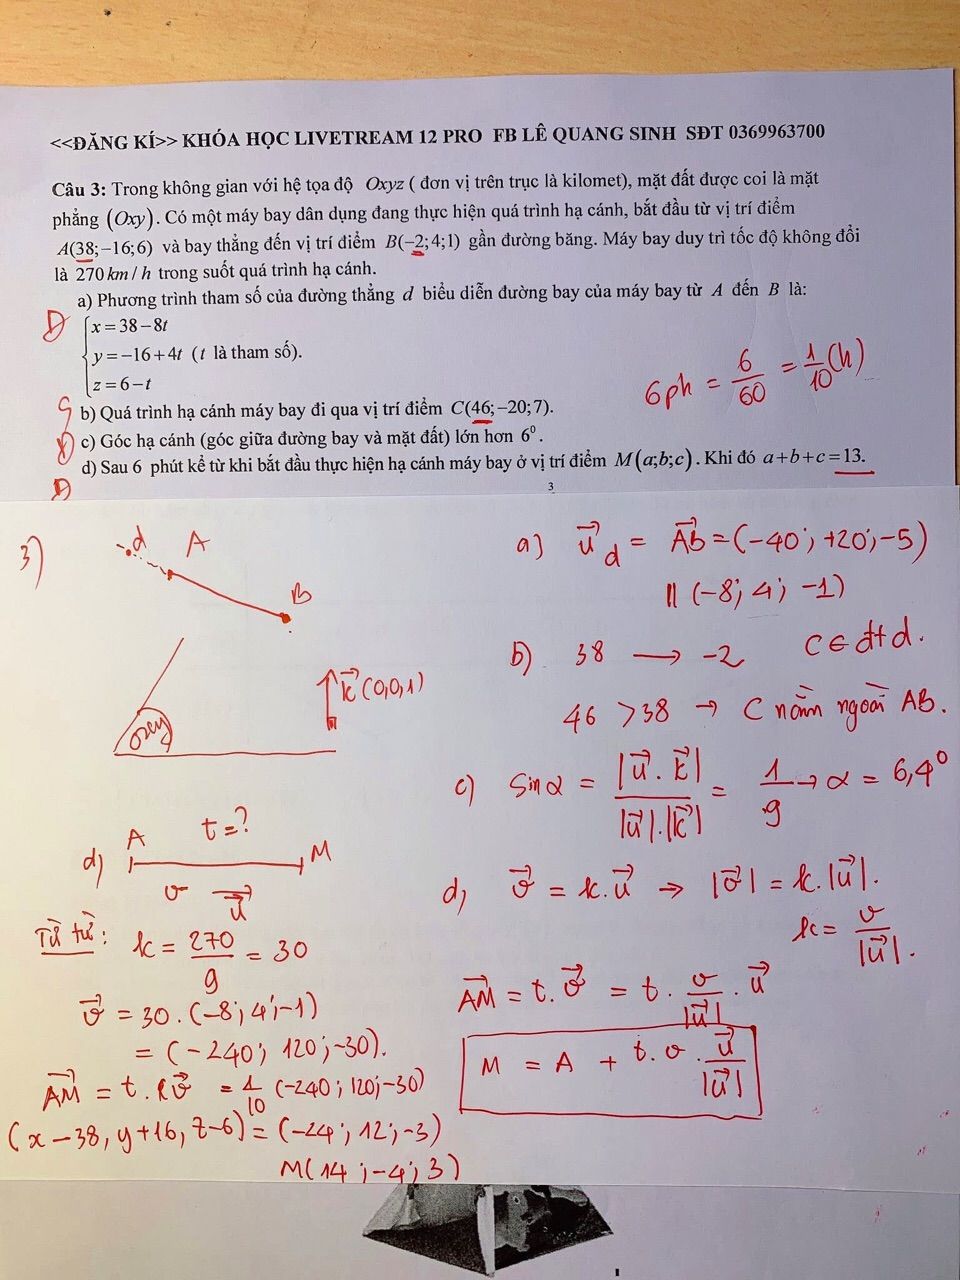 <<ĐĂNG KÍ>> KHÓA HỌC LIVETREAM 12 PRO FB LÊ QUANG SINH SĐT 0369963700
Câu 3: Trong không gian với hệ tọa độ Oxyz ( đơn vị trên trục là kilomet), mặt đất được coi là mặt
phẳng (Oxy). Có một máy bay dân dụng đang thực hiện quá trình hạ cánh, bắt đầu từ vị trí điểm
A(38;−16;6) và bay thẳng đến vị trí điểm B(−2;4;1) gần đường băng. Máy bay duy trì tốc độ không đổi
là 270km/h trong suốt quá trình hạ cánh.
a) Phương trình tham số của đường thẳng d biểu diễn đường bay của máy bay từ A đến B là:
Đ
{x = 38−8t
y = −16+4t (t là tham số).
z = 6−t
6ph = 6/60 = 1/10 (h)
S b) Quá trình hạ cánh máy bay đi qua vị trí điểm C(46;−20;7).
Đ c) Góc hạ cánh (góc giữa đường bay và mặt đất) lớn hơn 6⁰.
Đ d) Sau 6 phút kể từ khi bắt đầu thực hiện hạ cánh máy bay ở vị trí điểm M(a;b;c). Khi đó a+b+c=13.
3
3)
d A
B
k⃗ (0,0,1)
Oxy
a) u⃗d = AB⃗ = (−40; +20; −5)
|| (−8; 4; −1)
b) 38 → −2 C ∈ đt d.
46 > 38 → C nằm ngoài AB.
c) Sin α = |u⃗ . k⃗| / |u⃗|.|k⃗| = 1/9 → α = 6,4⁰
d) A t=? M
v u⃗
Từ từ: k = 270/9 = 30
v⃗ = 30.(−8; 4; −1)
= (−240; 120; −30).
AM⃗ = t.v⃗ = 1/10 (−240; 120; −30)
(x−38, y+16, z−6) = (−24; 12; −3)
M(14; −4; 3)
d, v⃗ = k.u⃗ → |v⃗| = k.|u⃗|.
k = v/|u⃗|.
AM⃗ = t.v⃗ = t. v/|u⃗| . u⃗
M = A + t.v. u⃗/|u⃗|